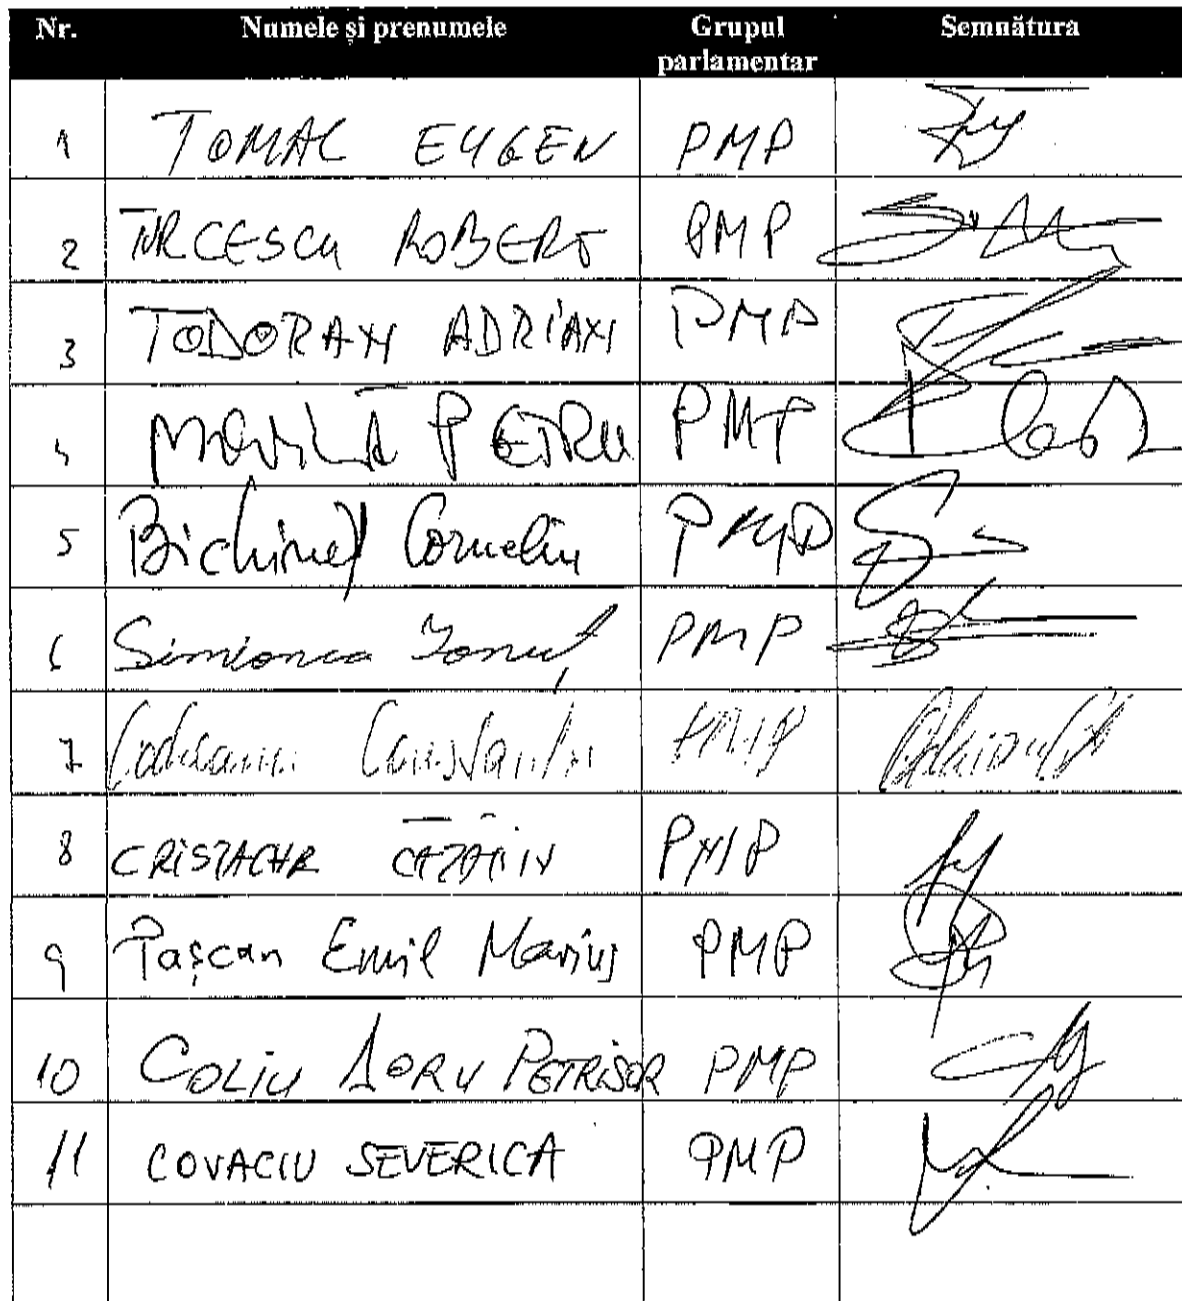 Nr. Numele și prenumele Grupul parlamentar Semnătura
1 TOMAC EUGEN PMP
2 TURCESCU ROBERT PMP
3 TODORAN ADRIAN PMP
4 MOVILĂ PETRU PMP
5 Bichineț Corneliu PMP
6 Simionca Ionuț PMP
7 Codreanu Constantin PMP
8 CRISTACHE CĂTĂLIN PMP
9 Pașcan Emil Marius PMP
10 COLIU DORU PETRISOR PMP
11 COVACIU SEVERICA PMP